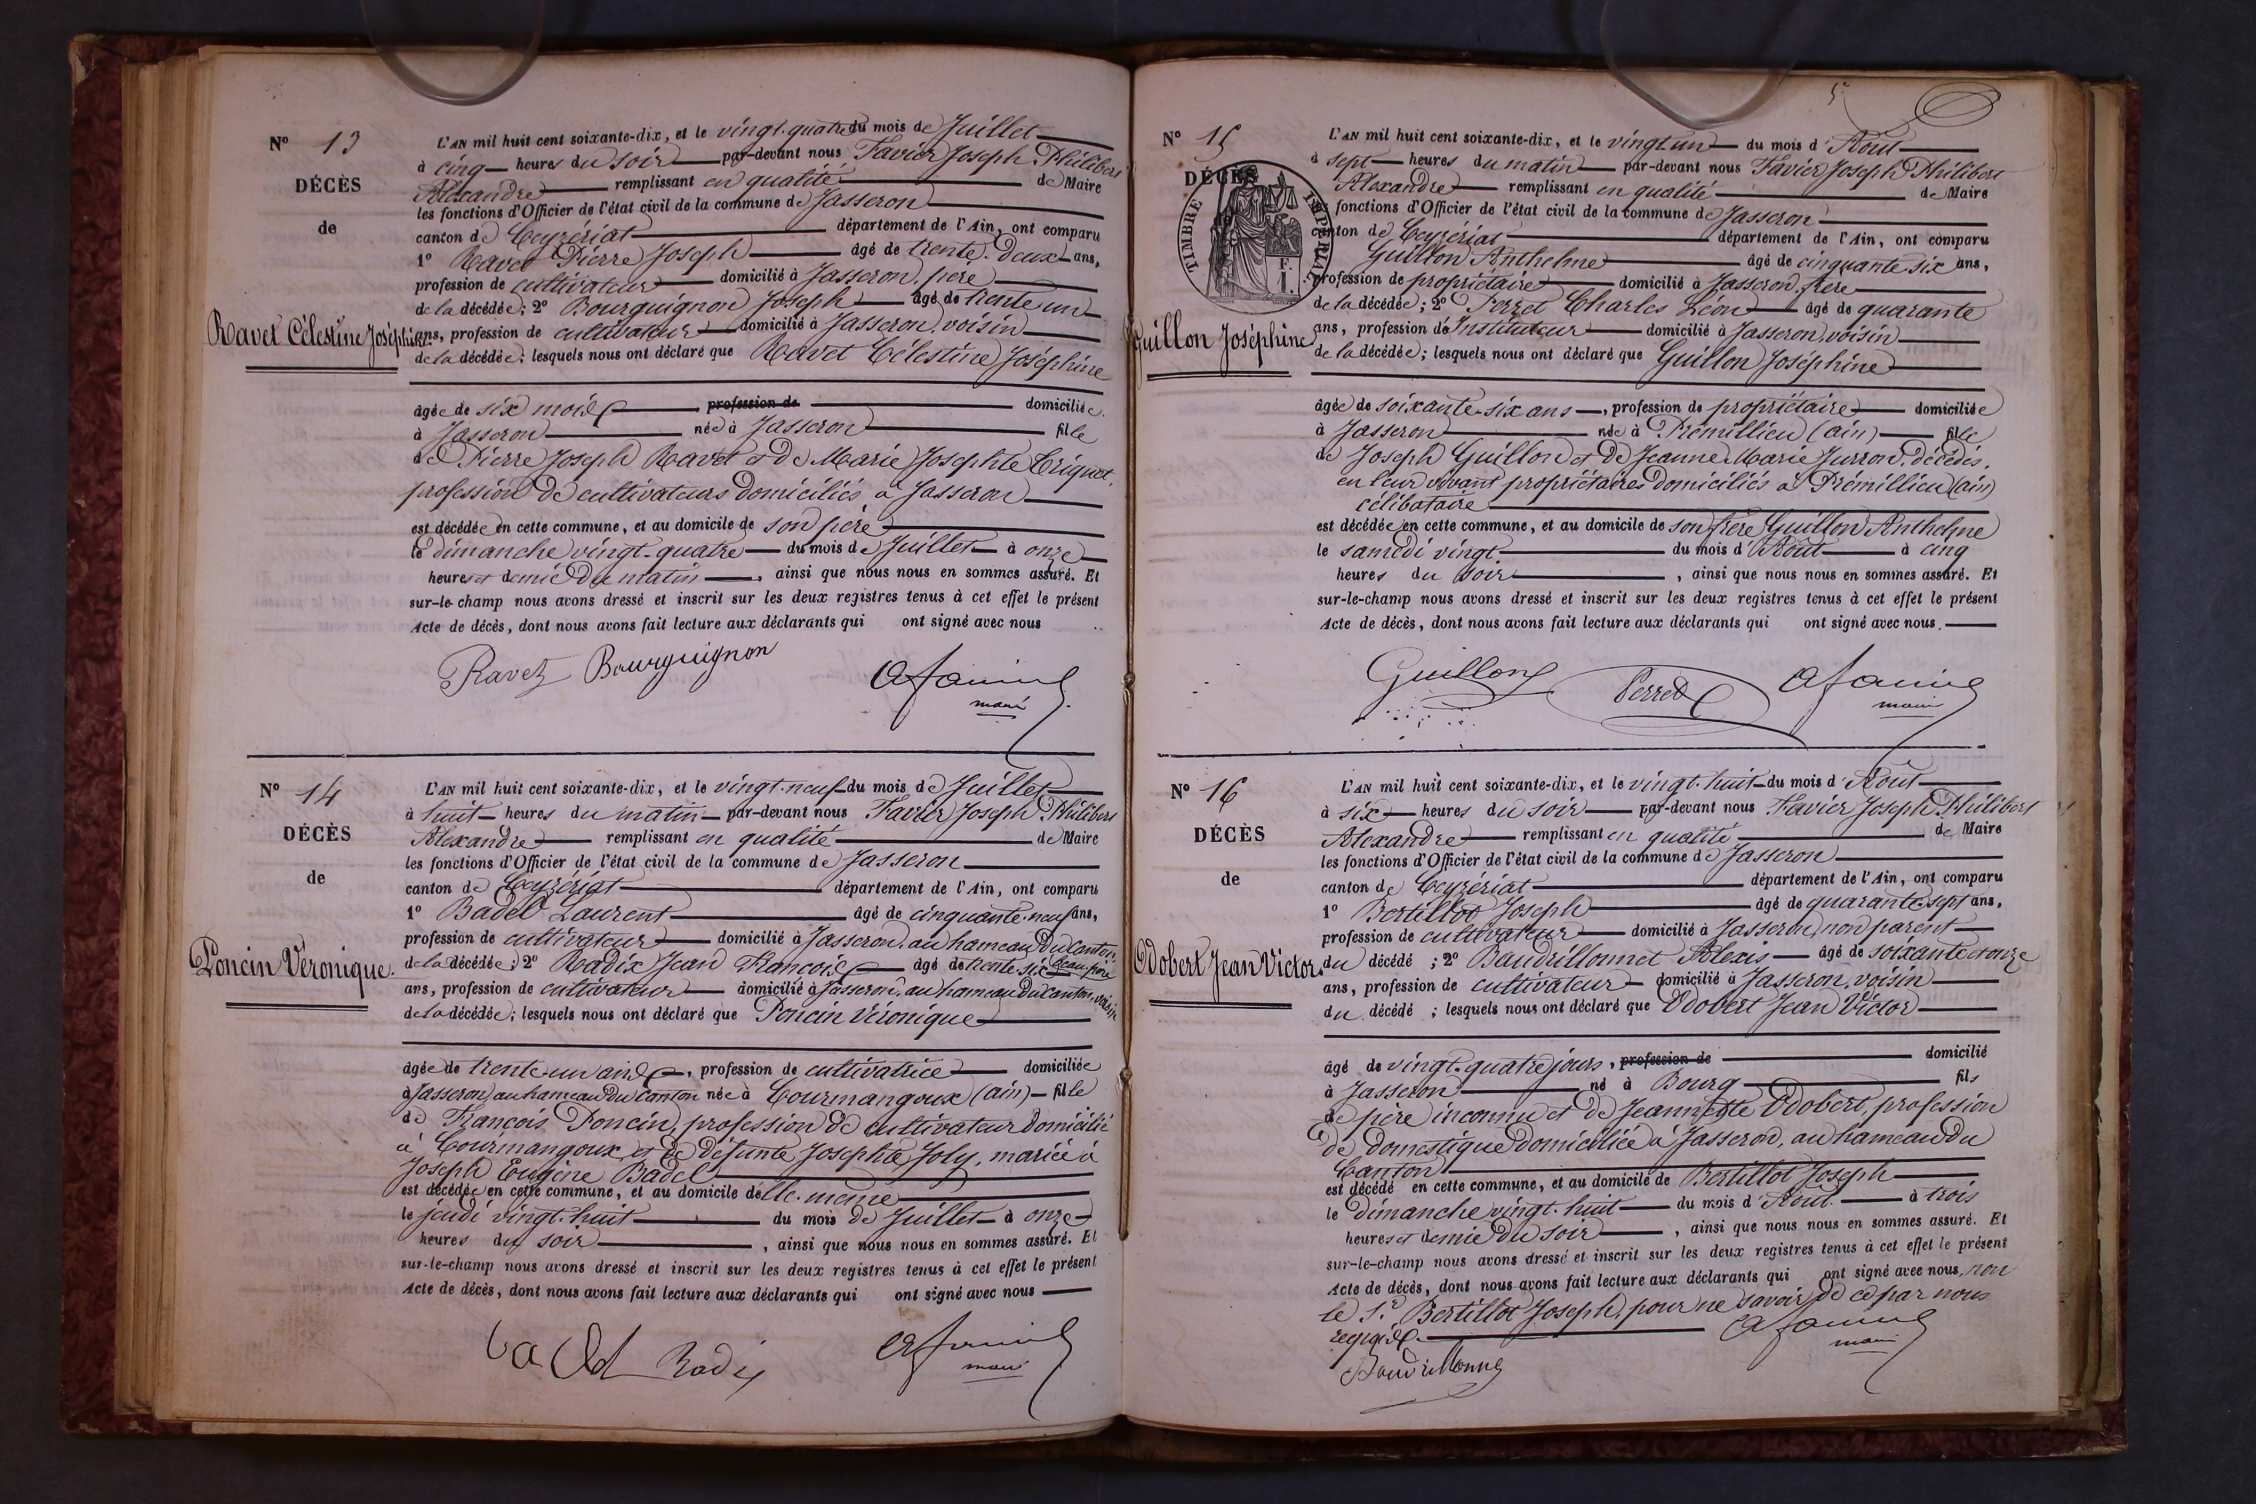 N° 13
DÉCÈS
de
Ravet Célestine Joséphine
L'AN mil huit cent soixante-dix, et le vingt-quatre du mois de Juillet
à cinq heures du soir par-devant nous Favier Joseph Philibert
Alexandre remplissant en qualité de Maire
les fonctions d'Officier de l'état civil de la commune de Jasseron
canton de Ceyzériat département de l'Ain, ont comparu
1° Ravet Pierre Joseph âgé de trente-deux ans,
profession de cultivateur domicilié à Jasseron, père
de la décédée; 2° Bourguignon Joseph âgé de trente un
ans, profession de cultivateur domicilié à Jasseron, voisin
de la décédée; lesquels nous ont déclaré que Ravet Célestine Joséphine
âgée de six mois profession de domiciliée
à Jasseron née à Jasseron fille
de Pierre Joseph Ravet et de Marie Josephte Criquet,
profession de cultivateurs domiciliés à Jasseron
est décédée en cette commune, et au domicile de son père
le dimanche vingt-quatre du mois de Juillet à onze
heures et demie du matin, ainsi que nous nous en sommes assuré. Et
sur-le-champ nous avons dressé et inscrit sur les deux registres tenus à cet effet le présent
Acte de décès, dont nous avons fait lecture aux déclarants qui ont signé avec nous
Ravet Bourguignon
maire
N° 14
DÉCÈS
de
Poncin Véronique.
L'AN mil huit cent soixante-dix, et le vingt-neuf du mois de Juillet
à huit heures du matin par-devant nous Favier Joseph Philibert
Alexandre remplissant en qualité de Maire
les fonctions d'Officier de l'état civil de la commune de Jasseron
canton de Ceyzériat département de l'Ain, ont comparu
1° Badel Laurent âgé de cinquante-neuf ans,
profession de cultivateur domicilié à Jasseron, au hameau du Canton, beau-père
de la décédée; 2° Radix Jean François âgé de trente-six
ans, profession de cultivateur domicilié à Jasseron, au hameau du Canton, voisin
de la décédée; lesquels nous ont déclaré que Poncin Véronique
âgée de trente-un ans, profession de cultivatrice domiciliée
à Jasseron, au hameau du Canton née à Courmangoux (ain) fille
de François Poncin, profession de cultivateur domicilié
à Courmangoux et de défunte Josephte Joly, mariée à
Joseph Eugène Badel
est décédée en cette commune, et au domicile d'elle-même
le jeudi vingt-huit du mois de Juillet à onze
heures du soir, ainsi que nous nous en sommes assuré. Et
sur-le-champ nous avons dressé et inscrit sur les deux registres tenus à cet effet le présent
Acte de décès, dont nous avons fait lecture aux déclarants qui ont signé avec nous
Badel Radix
maire
5e
N° 15
DÉCÈS
TIMBRE IMPERIAL
F.
1.
Guillon Joséphine
L'AN mil huit cent soixante-dix, et le vingt un du mois d'Août
à sept heures du matin par-devant nous Favier Joseph Philibert
Alexandre remplissant en qualité de Maire
fonctions d'Officier de l'état civil de la commune de Jasseron
canton de Ceyzériat département de l'Ain, ont comparu
Guillon Anthelme âgé de cinquante six ans,
profession de propriétaire domicilié à Jasseron, frère
de la décédée; 2° Perret Charles Léon âgé de quarante
ans, profession d'Instituteur domicilié à Jasseron, voisin
de la décédée; lesquels nous ont déclaré que Guillon Joséphine
âgée de soixante-six ans, profession de propriétaire domiciliée
à Jasseron née à Prémillieu (ain) fille
de Joseph Guillon et de Jeanne Marie Jurron, décédés,
en leur vivant propriétaires domiciliés à Prémillieu (ain)
célibataire
est décédée en cette commune, et au domicile de son frère Guillon Anthelme
le samedi vingt du mois d'Août à cinq
heures du soir, ainsi que nous nous en sommes assuré. Et
sur-le-champ nous avons dressé et inscrit sur les deux registres tenus à cet effet le présent
Acte de décès, dont nous avons fait lecture aux déclarants qui ont signé avec nous.
Guillon Perret
maire
N° 16
DÉCÈS
de
Odobert Jean Victor
L'AN mil huit cent soixante-dix, et le vingt-huit du mois d'Août
à six heures du soir par-devant nous Favier Joseph Philibert
Alexandre remplissant en qualité de Maire
les fonctions d'Officier de l'état civil de la commune de Jasseron
canton de Ceyzériat département de l'Ain, ont comparu
1° Bertillot Joseph âgé de quarante-sept ans,
profession de cultivateur domicilié à Jasseron, non parent
du décédé; 2° Baudrillonnet Alexis âgé de soixante onze
ans, profession de cultivateur domicilié à Jasseron, voisin
du décédé; lesquels nous ont déclaré que Odobert Jean Victor
âgé de vingt-quatre jours, profession de domicilié
à Jasseron né à Bourg fils
de père inconnu et de Jeannette Odobert, profession
de domestique domiciliée à Jasseron, au hameau du
Canton
est décédé en cette commune, et au domicile de Bertillot Joseph
le dimanche vingt-huit du mois d'Août à trois
heures et demie du soir, ainsi que nous nous en sommes assuré. Et
sur-le-champ nous avons dressé et inscrit sur les deux registres tenus à cet effet le présent
Acte de décès, dont nous avons fait lecture aux déclarants qui ont signé avec nous, non
le Sr Bertillot Joseph, pour ne savoir, de ce par nous
requis.
maire